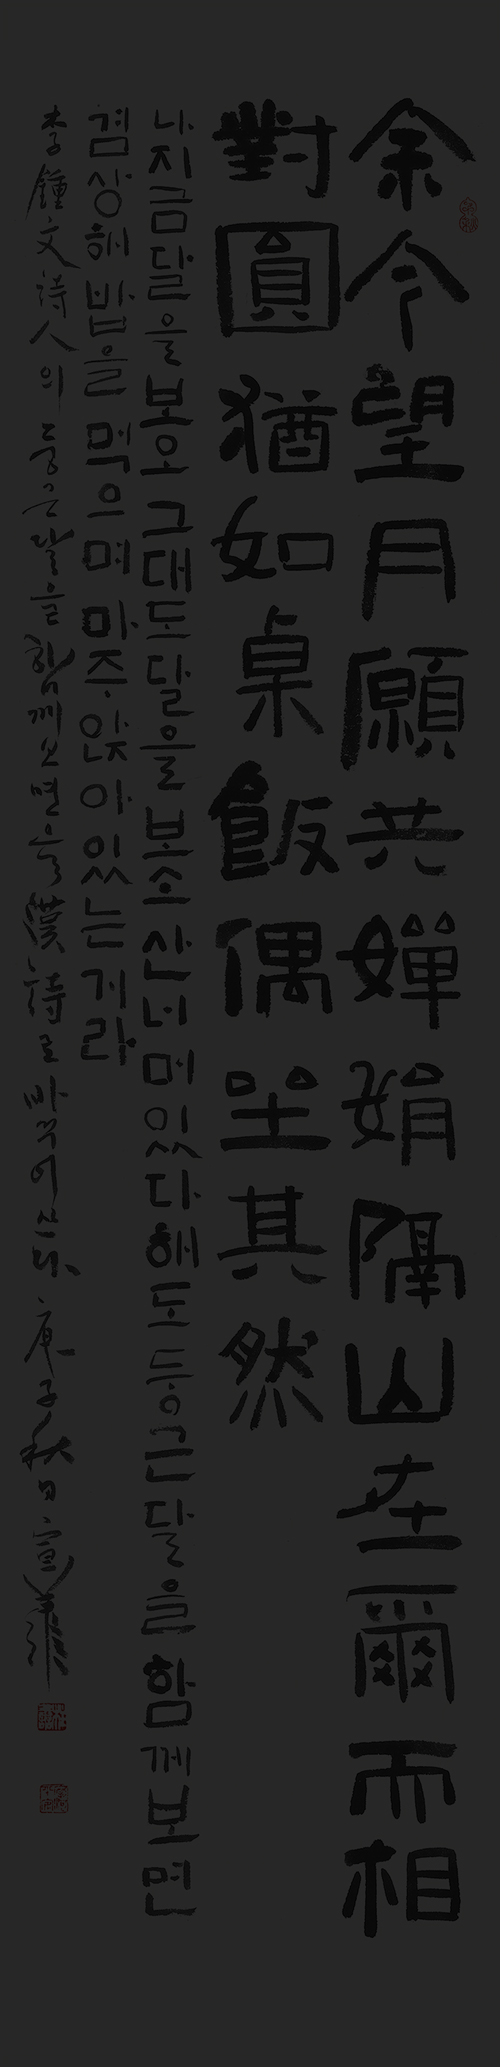 余今望月願共嬋娟隔山在爾而相
對圓猶如桌飯偶坐其然
나 지금 달을 보오 그대도 달을 보소 산 너머 있다 해도 둥근 달을 함께 보면
겸상해 밥을 먹으며 마주 앉아 있는 게라
李鍾文詩人의 둥근 달을 함께 보면을 漢詩로 바꾸어 쓰다 庚子秋日